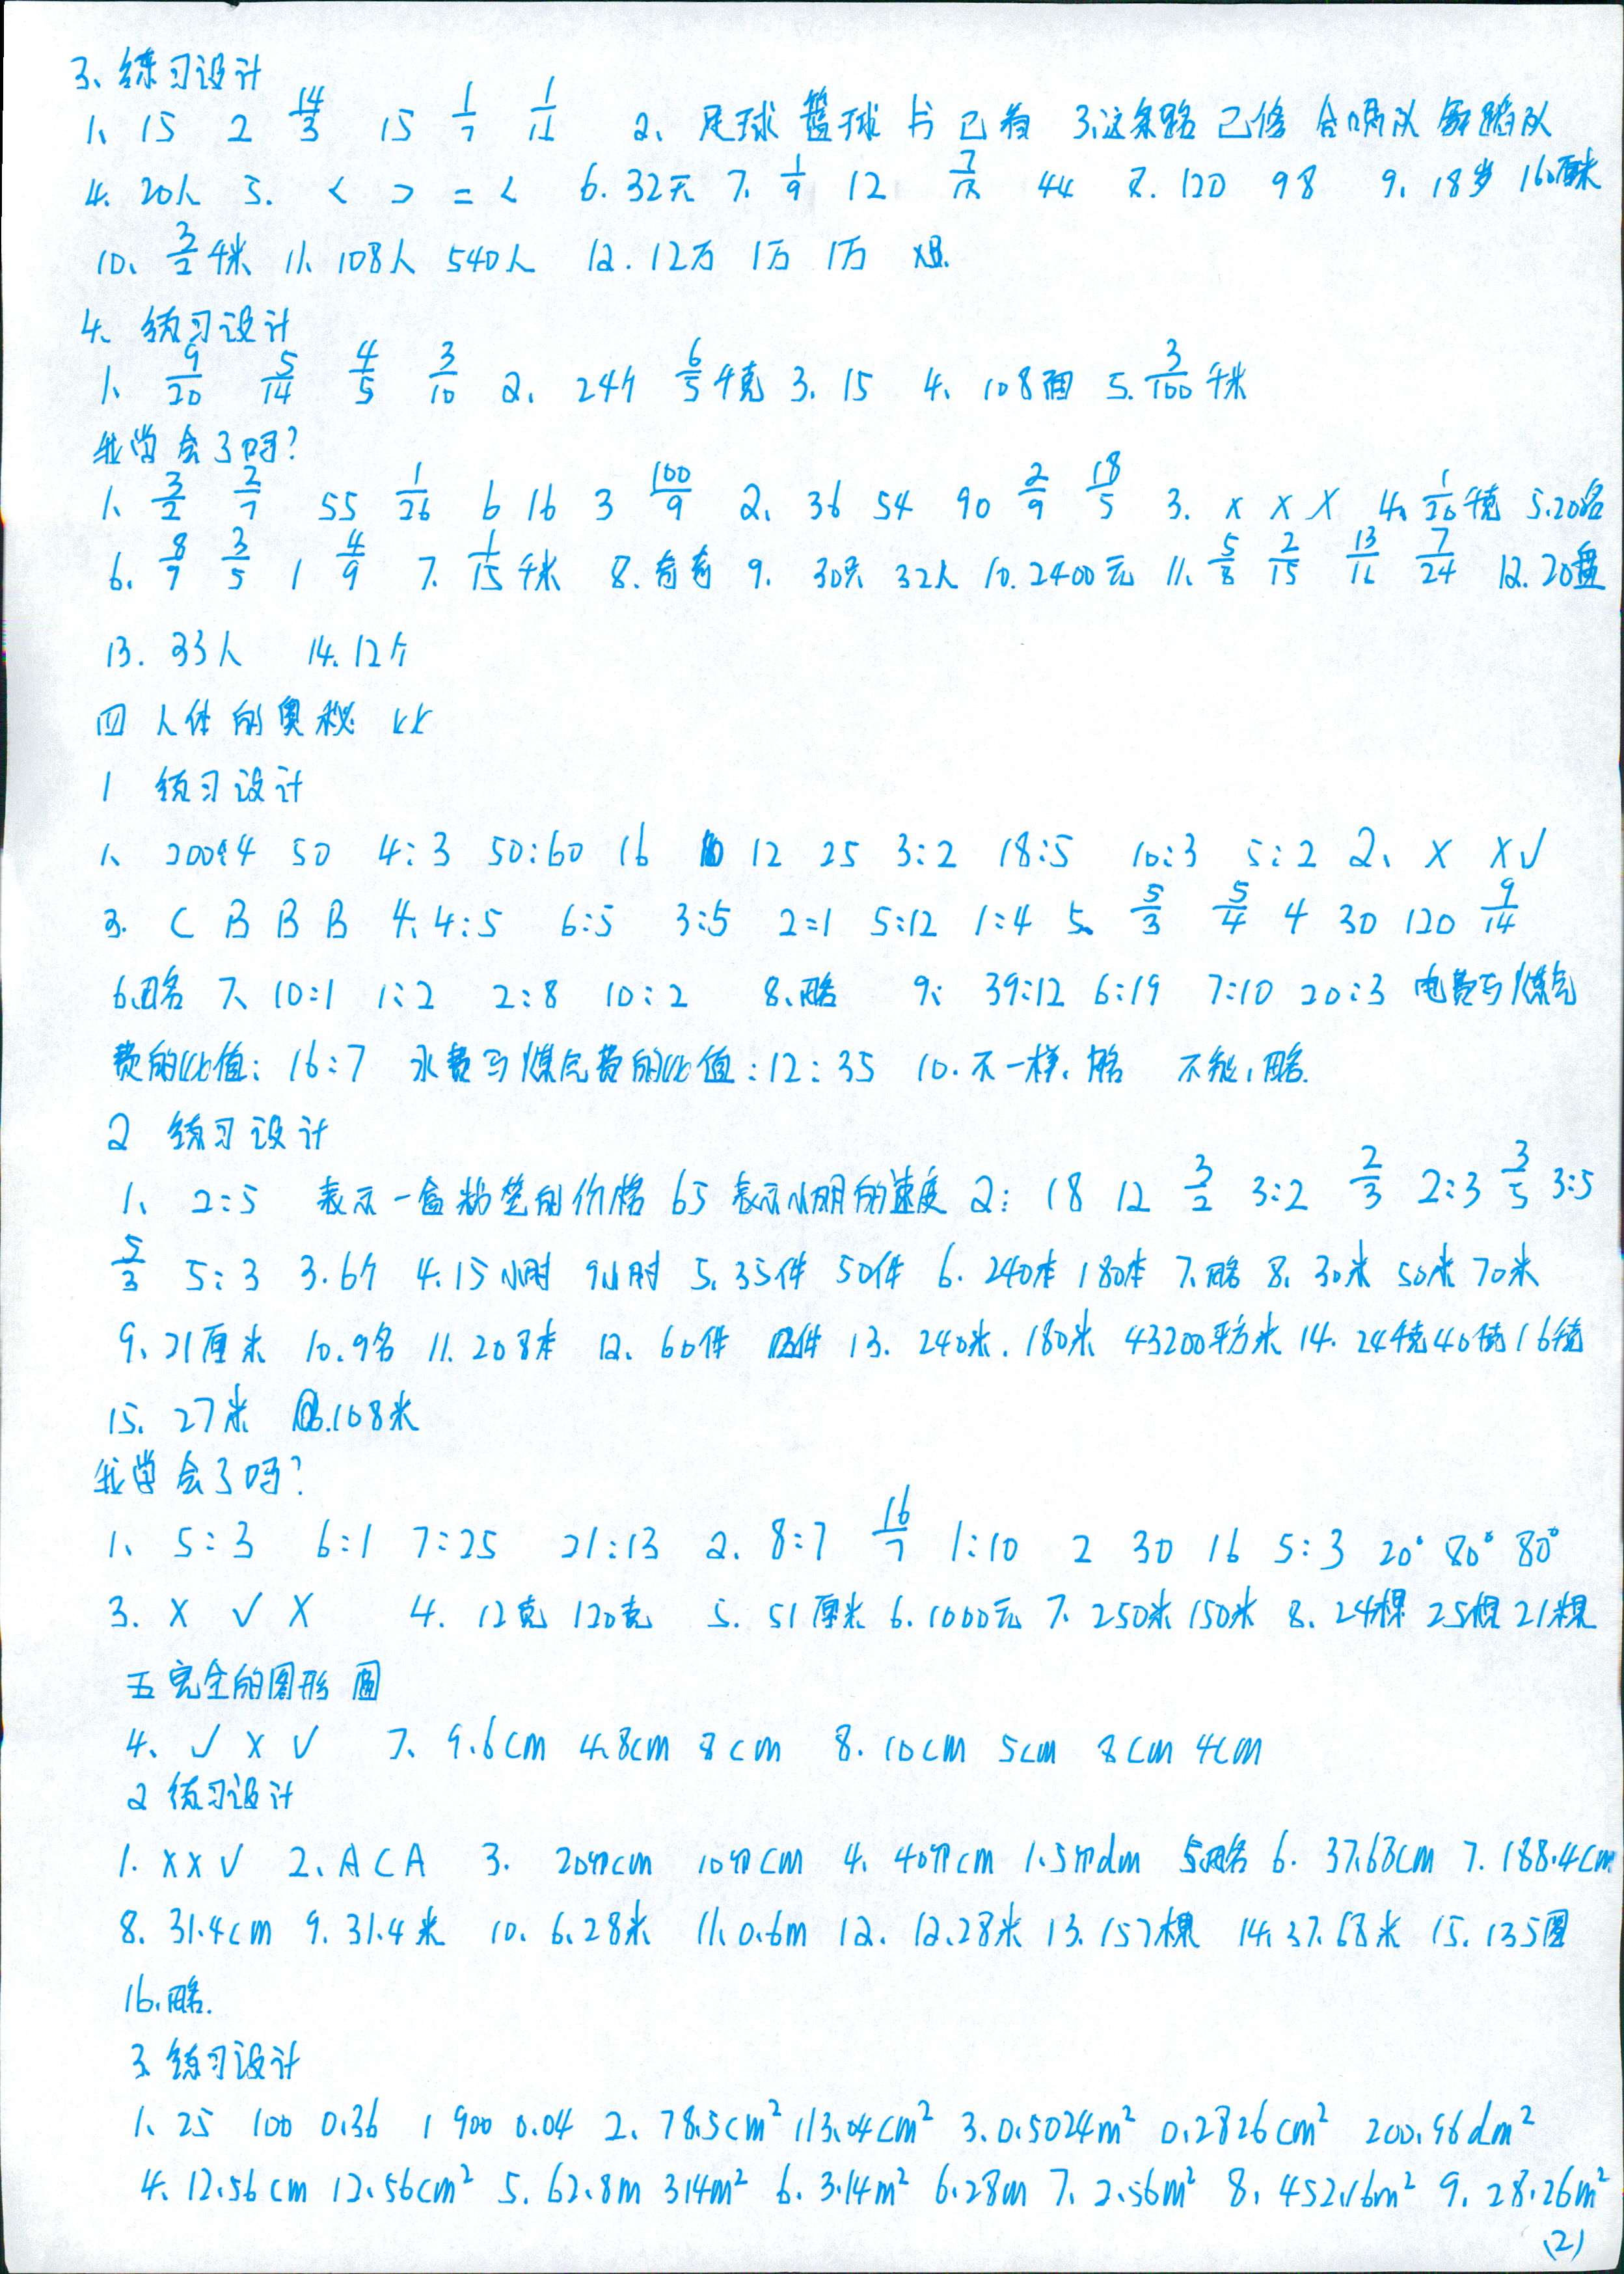 3、练习设计
1、 15 2 14/3 15 1/7 1/11 2、 足球 篮球 书 已看 3.这条路 已修 合唱队 舞蹈队
4. 20人 5. < > = < 6. 32天 7. 1/9 12 44 8. 120 98 9. 18岁 160厘米
10、 3/2千米 11、 108人 540人 12. 12万 1万 1万
4、 练习设计
1、 9/20 5/14 4/5 3/10 2、 24个 6/5千克 3. 15 4. 108面 5. 3/100千米
我学会了吗?
1、 3/2 2/7 55 1/26 6 16 3 100/9 2、 36 54 90 2/9 18/5 3. × × × 4. 1/20千克 5.20名
6. 8/9 3/5 1 4/9 7. 1/15千米 8.奇奇 9. 30只 32人 10.2400元 11. 5/8 2/15 13/16 7/24 12.20盘
13. 33人 14.12个
四 人体的奥秘 比
1 练习设计
1、 50 4:3 50:60 16 12 25 3:2 18:5 10:3 5:2 2、 × ×√
3. C B B B 4. 4:5 6:5 3:5 2=1 5:12 1:4 5. 5/3 5/4 4 30 120 9/14
6.略 7、 10:1 1:2 2:8 10:2 8.略 9: 39:12 6:19 7:10 20:3 电费与煤气
费的比值: 16:7 水费与煤气费的比值:12:35 10.不一样、略 不能,略.
2 练习设计
1、 2:5 表示一盒粉笔的价格 65 表示小明的速度 2: 18 12 3/2 3:2 2/3 2:3 3/5 3:5
5/3 5:3 3.6个 4.15小时 9小时 5. 35件 50件 6. 240本 180本 7.略 8. 30米 50米 70米
9. 21厘米 10.9名 11. 208本 12. 60件 13. 240米. 180米 43200平方米 14. 24千克40千克16千克
15. 27米 108米
我学会了吗?
1、 5:3 6:1 7:25 21:13 2. 8:7 16/7 1:10 2 30 16 5:3 20° 80° 80°
3. × √ × 4. 12克 120克 5. 51厘米 6.1000元 7. 250米 150米 8. 24棵 25棵 21棵
五 完全的图形 圆
4、 √ × √ 7. 9.6cm 4.8cm 8cm 8. 10cm 5cm 8cm 4cm
2 练习设计
1. ××√ 2. A C A 3. 20πcm 10πcm 4. 40πcm 1.5πdm 5.略 6. 37.68cm 7. 188.4cm
8. 31.4cm 9. 31.4米 10. 6.28米 11. 0.6m 12. 12.28米 13. 157棵 14. 37.68米 15. 135圈
16.略.
3 练习设计
1. 25 100 0.36 1 900 0.04 2. 78.5cm² 113.04cm² 3. 0.5024m² 0.2826cm² 200.96dm²
4. 12.56cm 12.56cm² 5. 62.8m 314m² 6. 3.14m² 6.28m 7. 2.56m² 8. 452.16m² 9. 28.26m²
(2)